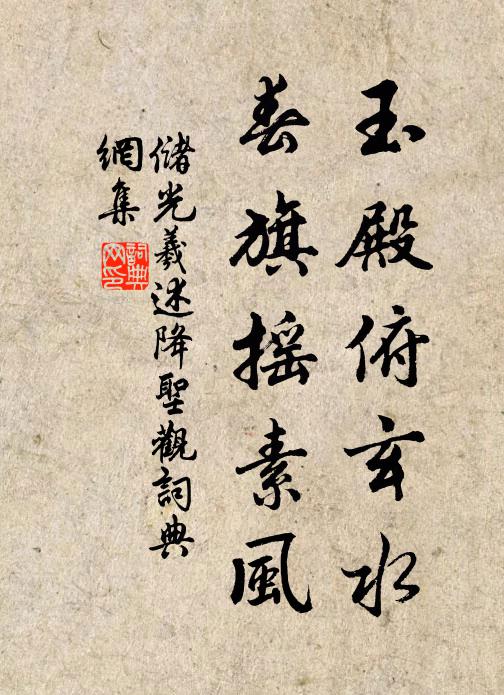 玉殿俯玄水
春旗搖素風
儲光羲述降聖觀詞典
網集
詞典
网印